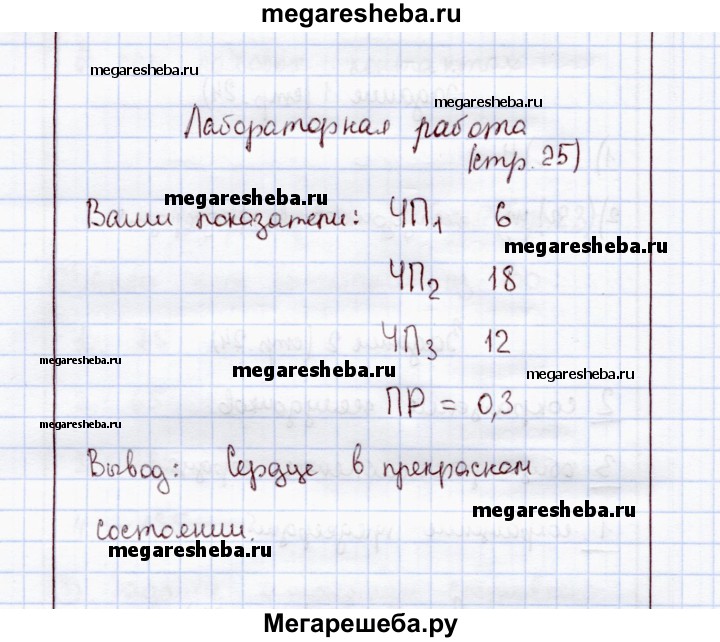 megaresheba.ru
megaresheba.ru
megaresheba.ru
Лабораторная работа
(стр. 25)
megaresheba.ru
Ваши показатели: ЧП1 6
megaresheba.ru
ЧП2 18
ЧП3 12
megaresheba.ru
megaresheba.ru
megaresheba.ru
ПР = 0,3
megaresheba.ru
Вывод: Сердце в прекрасном
megaresheba.ru
состоянии.
megaresheba.ru
Мегарешеба.ру